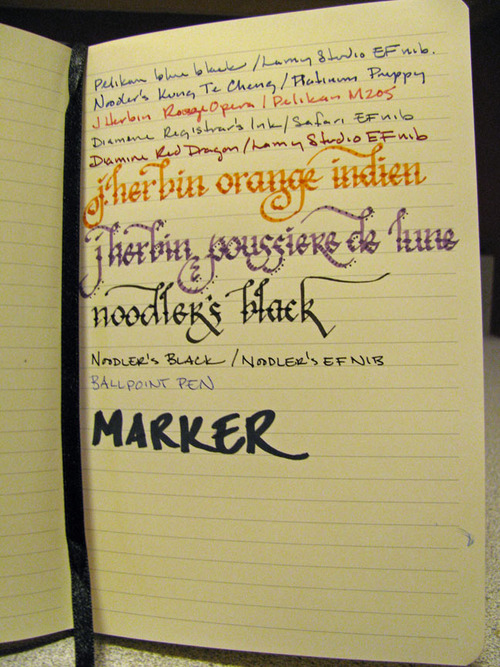 Pelikan blue black / Lamy Studio EF nib.
Noodler's Kung Te Cheng / Platinum Preppy
J Herbin Rouge Opera / Pelikan M205
Diamine Registrar's Ink / Safari EF nib
Diamine Red Dragon / Lamy Studio EF nib
j. herbin orange indien
j herbin poussiere de lune
noodler's black
NOODLER'S BLACK / NOODLER'S EF NIB
BALLPOINT PEN
MARKER